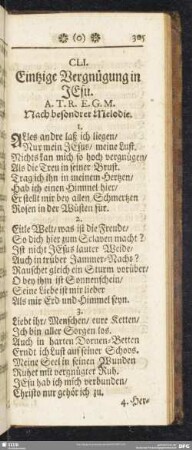 (o) 305
CLI.
Eintzige Vergnügung in
JEsu.
A. T. R. E. G. M.
Nach besondrer Melodie.
1.
ALles andre laß ich liegen/
Nur mein JEsus/ meine Lust,
Nichts kan mich so hoch vergnügen/
Als die Treu in seiner Brust.
Trag ich ihn in meinem Hertzen/
Hab ich einen Himmel hier/
Er stellt mir bey allen Schmertzen
Rosen in der Wüsten für.
2.
Eitle Welt/ was ist die Freude/
So dich hier zum Sclaven macht?
Ist nicht JEsus lauter Weide/
Auch in trüber Jammer-Nacht?
Rauschet gleich ein Sturm vorüber/
O bey ihm ist Sonnenschein/
Seine Liebe ist mir lieber
Als mir Erd und Himmel seyn.
3.
Liebt ihr/ Menschen/ eure Ketten/
Ich bin aller Sorgen los.
Auch in harten Dornen-Betten
Erndt ich Lust auf seiner Schoos.
Meine Seel in seinen Wunden
Ruhet mit vergnügter Ruh.
JEsu hab ich mich verbunden/
Christo nur gehör ich zu.
4. Her-